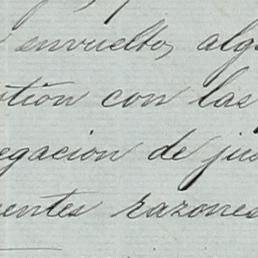 envuelto, alg
stion con las
egacion de jus
uentes razones